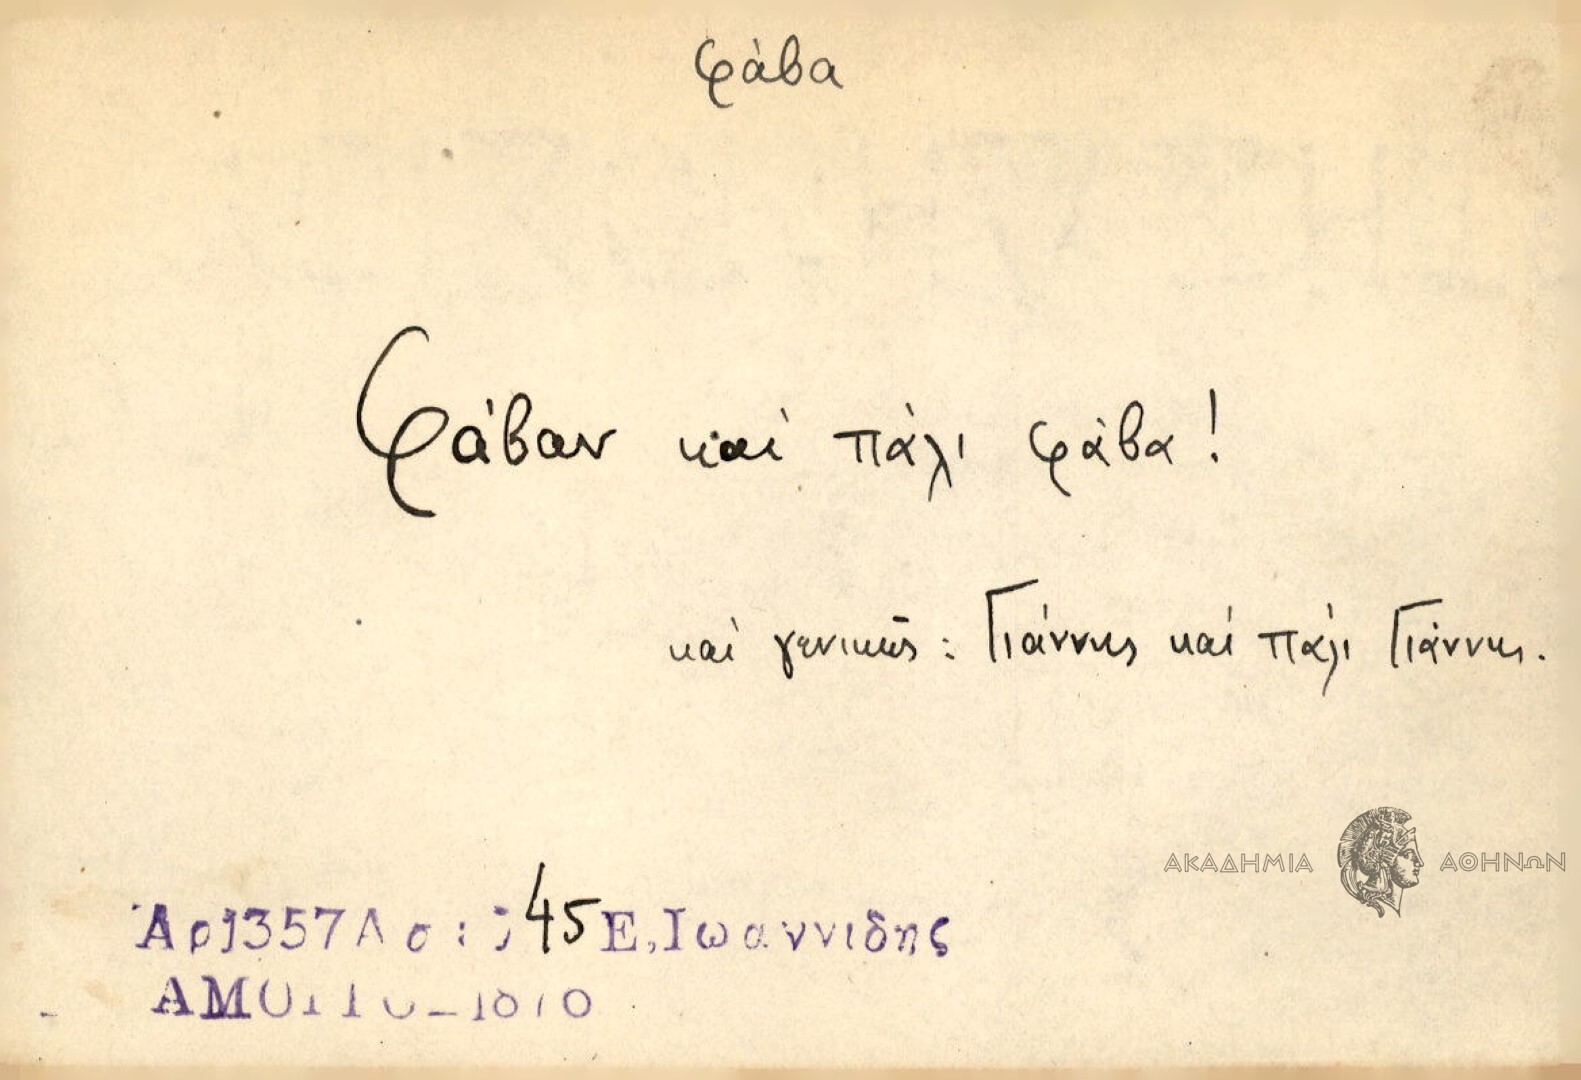 φάβα
Φάβαν καὶ πάλι φάβα!
καὶ γενικῶς: Γιάννης καὶ πάλι Γιάννης.
ΑΚΑΔΗΜΙΑ ΑΘΗΝΩΝ
Ἀρ 1357 Α σ: 45 Ε, Ιωαννιδης
ΑΜΟΡΓΟ